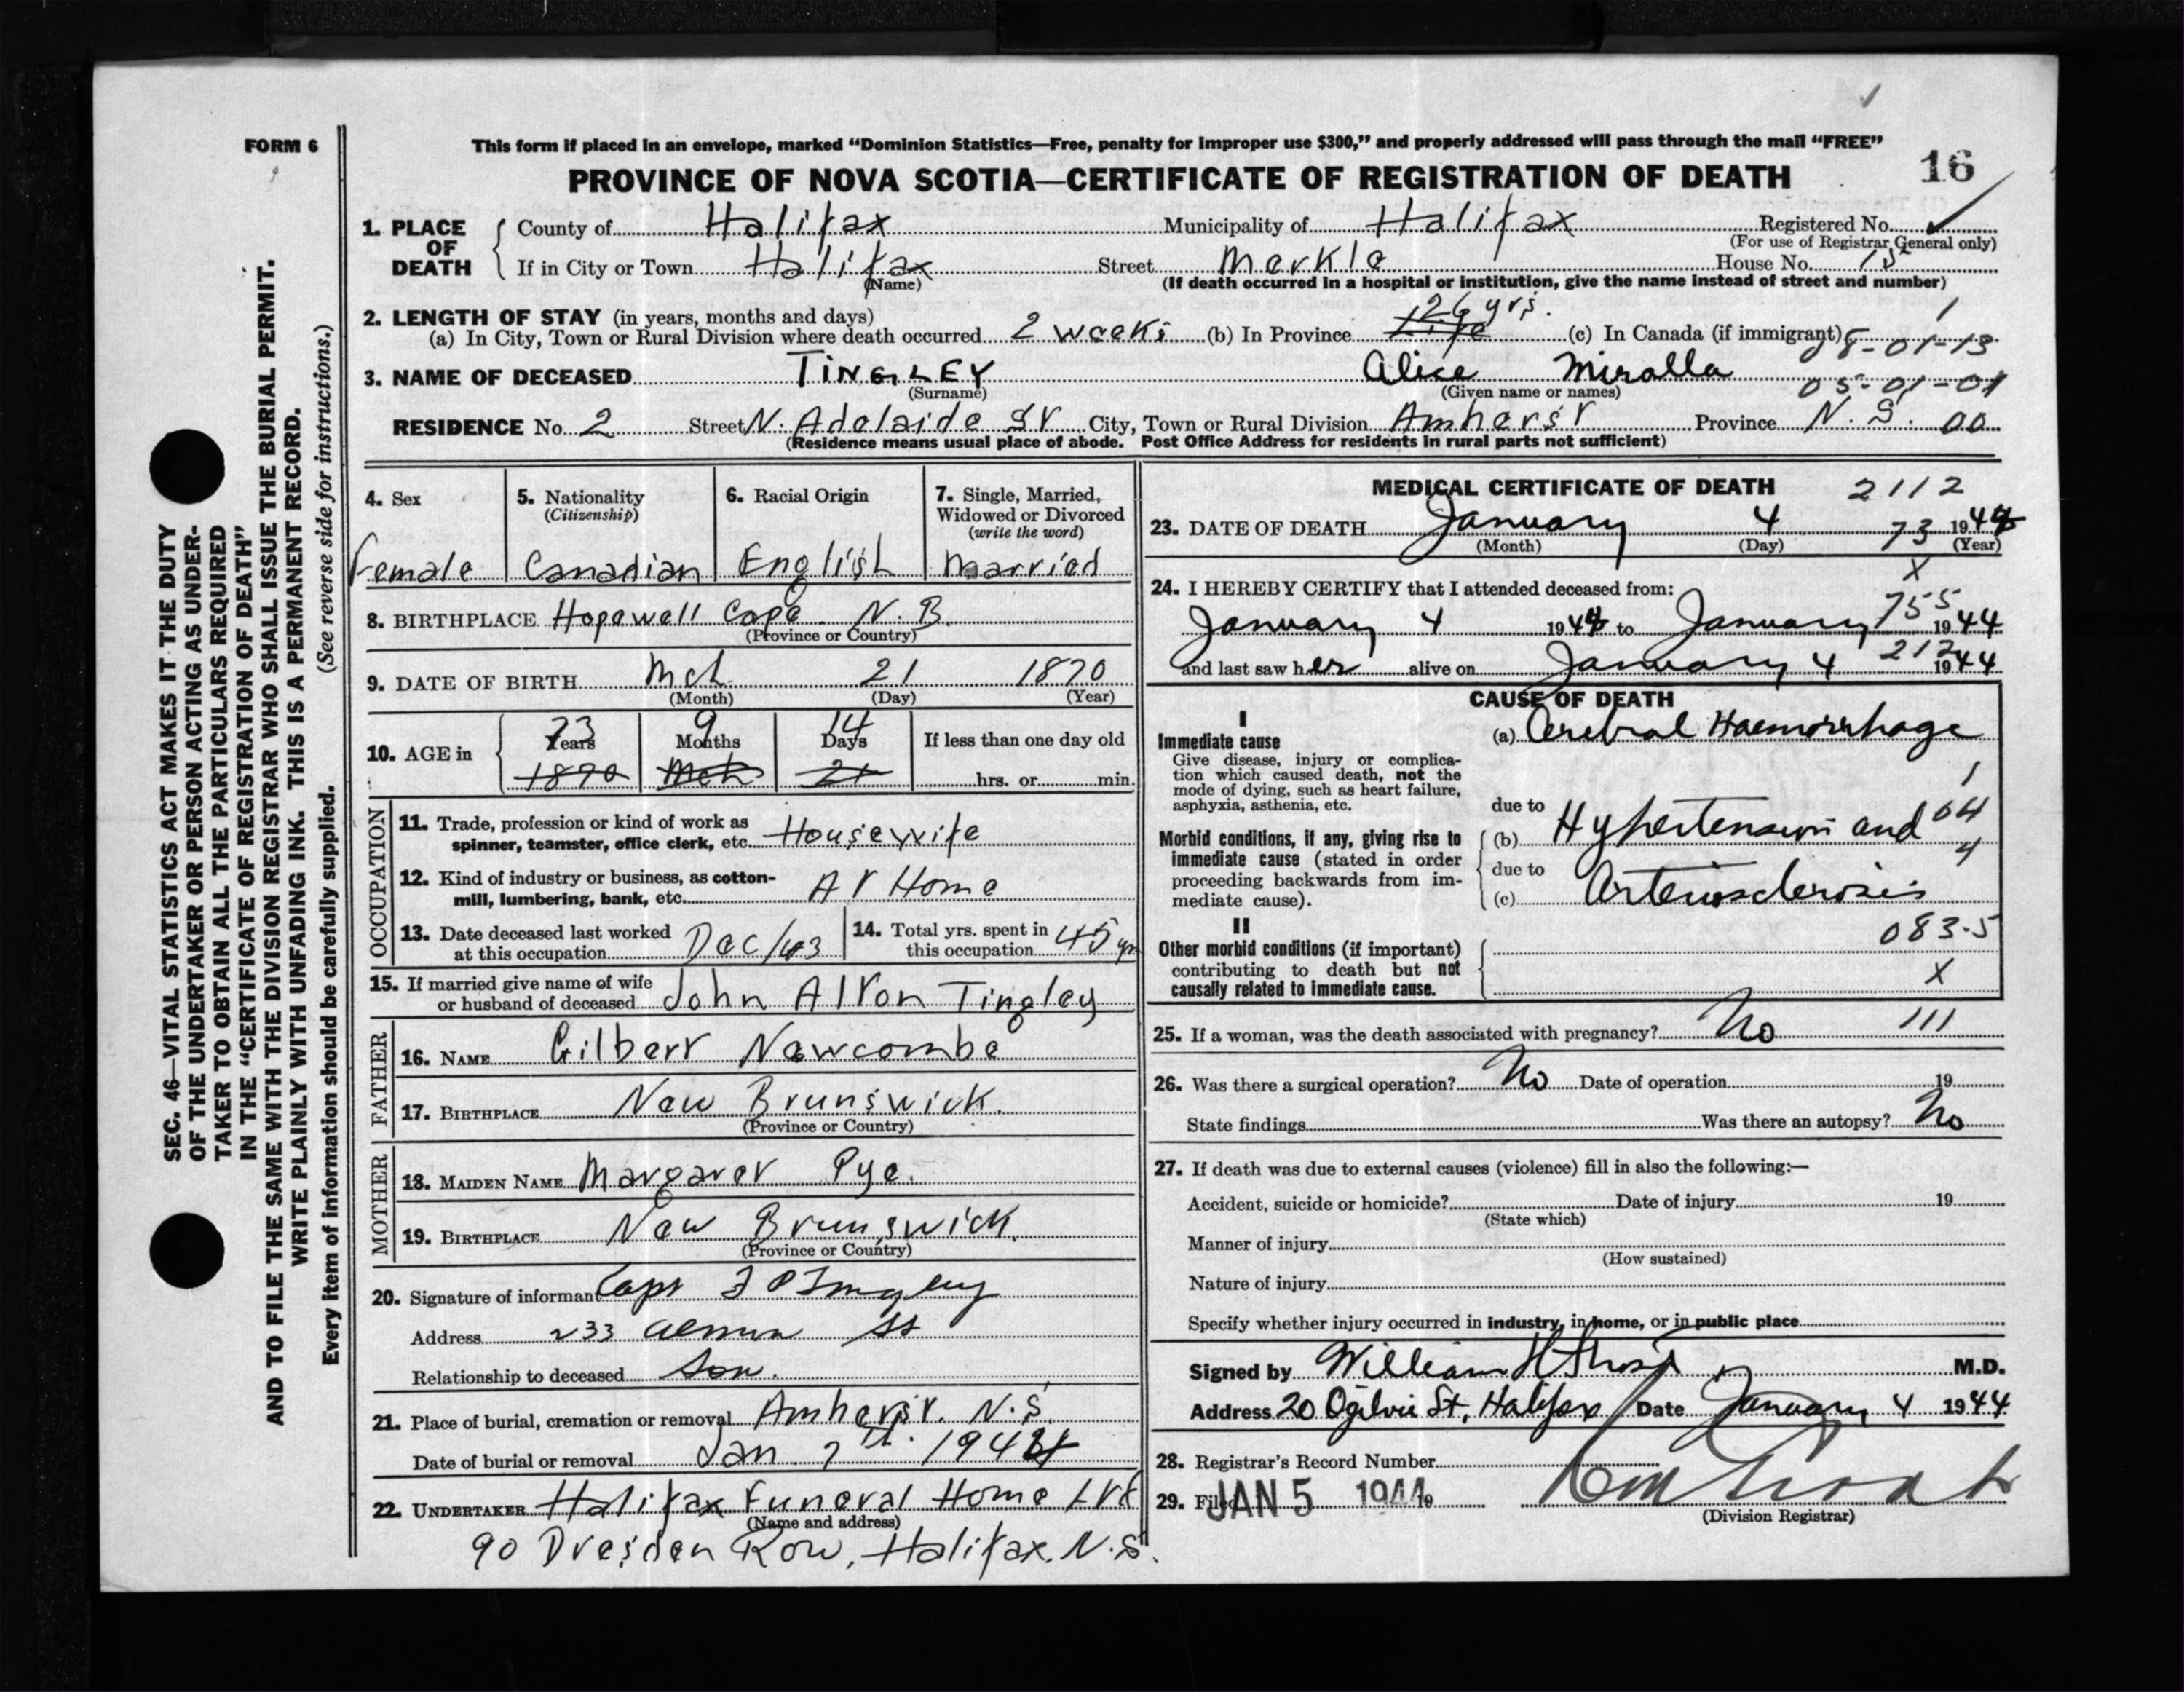 FORM 6
This form if placed in an envelope, marked “Dominion Statistics—Free, penalty for improper use $300,” and properly addressed will pass through the mail “FREE”
PROVINCE OF NOVA SCOTIA—CERTIFICATE OF REGISTRATION OF DEATH
16
1. PLACE OF DEATH
County of Halifax Municipality of Halifax Registered No.
(For use of Registrar General only)
If in City or Town Halifax Street Merkle House No. 15
(Name) (If death occurred in a hospital or institution, give the name instead of street and number)
2. LENGTH OF STAY (in years, months and days) 26 yrs. 1
(a) In City, Town or Rural Division where death occurred 2 weeks (b) In Province Life (c) In Canada (if immigrant)
08-01-13
3. NAME OF DECEASED TINGLEY Alice Miralla
(Surname) (Given name or names) 05-01-01
RESIDENCE No. 2 Street N. Adelaide St City, Town or Rural Division Amherst Province N.S. 00
(Residence means usual place of abode. Post Office Address for residents in rural parts not sufficient)
4. Sex 5. Nationality (Citizenship) 6. Racial Origin 7. Single, Married, Widowed or Divorced (write the word)
Female Canadian English Married
8. BIRTHPLACE Hopewell Cape N.B.
(Province or Country)
9. DATE OF BIRTH Mch 21 1870
(Month) (Day) (Year)
10. AGE in 73 Years 9 Months 14 Days If less than one day old
1870 Mch 21 hrs. or min.
OCCUPATION
11. Trade, profession or kind of work as
spinner, teamster, office clerk, etc. Housewife
12. Kind of industry or business, as cotton-
mill, lumbering, bank, etc. At Home
13. Date deceased last worked
at this occupation Dec/43
14. Total yrs. spent in
this occupation 45 yrs
15. If married give name of wife
or husband of deceased John Alton Tingley
FATHER
16. NAME Gilbert Newcombe
17. BIRTHPLACE New Brunswick.
(Province or Country)
MOTHER
18. MAIDEN NAME Margaret Pye.
19. BIRTHPLACE New Brunswick.
(Province or Country)
20. Signature of informant Capt Tingley
Address 233 St
Relationship to deceased Son.
21. Place of burial, cremation or removal Amherst. N.S.
Date of burial or removal Jan 7th. 1944
22. UNDERTAKER Halifax Funeral Home Ltd
(Name and address)
90 Dresden Row, Halifax, N.S.
MEDICAL CERTIFICATE OF DEATH 2112
23. DATE OF DEATH January 4 73 1944
(Month) (Day) (Year)
X
24. I HEREBY CERTIFY that I attended deceased from:
755
January 4 1944 to January 1944
212
and last saw her alive on January 4 1944
CAUSE OF DEATH
I
Immediate cause
Give disease, injury or complica-
tion which caused death, not the
mode of dying, such as heart failure,
asphyxia, asthenia, etc.
(a) Cerebral Haemorrhage
1
due to
Morbid conditions, if any, giving rise to
immediate cause (stated in order
proceeding backwards from im-
mediate cause).
(b) Hypertension and 04
4
due to
(c) Arteriosclerosis
II
Other morbid conditions (if important)
contributing to death but not
causally related to immediate cause.
083.5
X
25. If a woman, was the death associated with pregnancy? No 111
26. Was there a surgical operation? No Date of operation 19
State findings Was there an autopsy? No
27. If death was due to external causes (violence) fill in also the following:—
Accident, suicide or homicide? Date of injury 19
(State which)
Manner of injury
(How sustained)
Nature of injury
Specify whether injury occurred in industry, in home, or in public place
Signed by William H M.D.
Address 20 Ogilvie St, Halifax Date January 4 1944
28. Registrar's Record Number
29. Filed JAN 5 1944 19
(Division Registrar)
SEC. 46—VITAL STATISTICS ACT MAKES IT THE DUTY
OF THE UNDERTAKER OR PERSON ACTING AS UNDER-
TAKER TO OBTAIN ALL THE PARTICULARS REQUIRED
IN THE “CERTIFICATE OF REGISTRATION OF DEATH”
AND TO FILE THE SAME WITH THE DIVISION REGISTRAR WHO SHALL ISSUE THE BURIAL PERMIT.
WRITE PLAINLY WITH UNFADING INK. THIS IS A PERMANENT RECORD.
Every item of information should be carefully supplied. (See reverse side for instructions.)